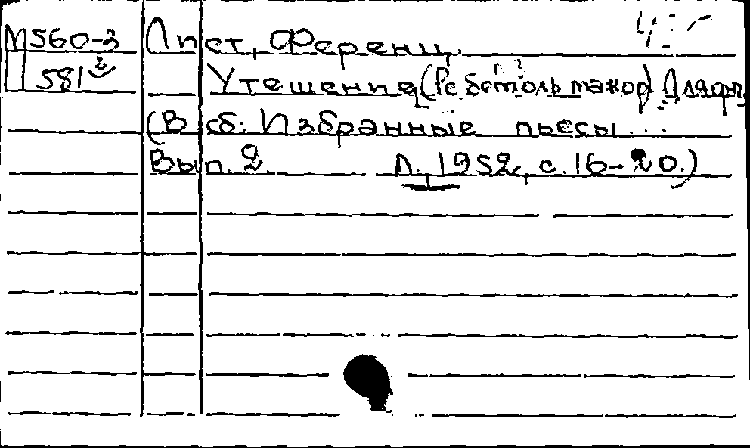 М560-3 Лист, Ференц.
581 Утешение (Ре бемоль мажор) Для
(В сб: Избранные пьесы
Вып. 2 Л., 1952, с. 16-20.)